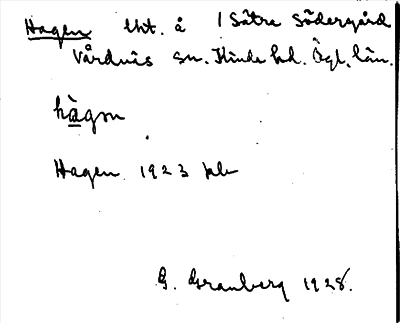 Hagen lht. å 1 Sätra Södergård
Vårdnäs sn. Kinda hd. Ögl. län.
hàgɘn
Hagen 1923 jdb
G. Granberg 1928.